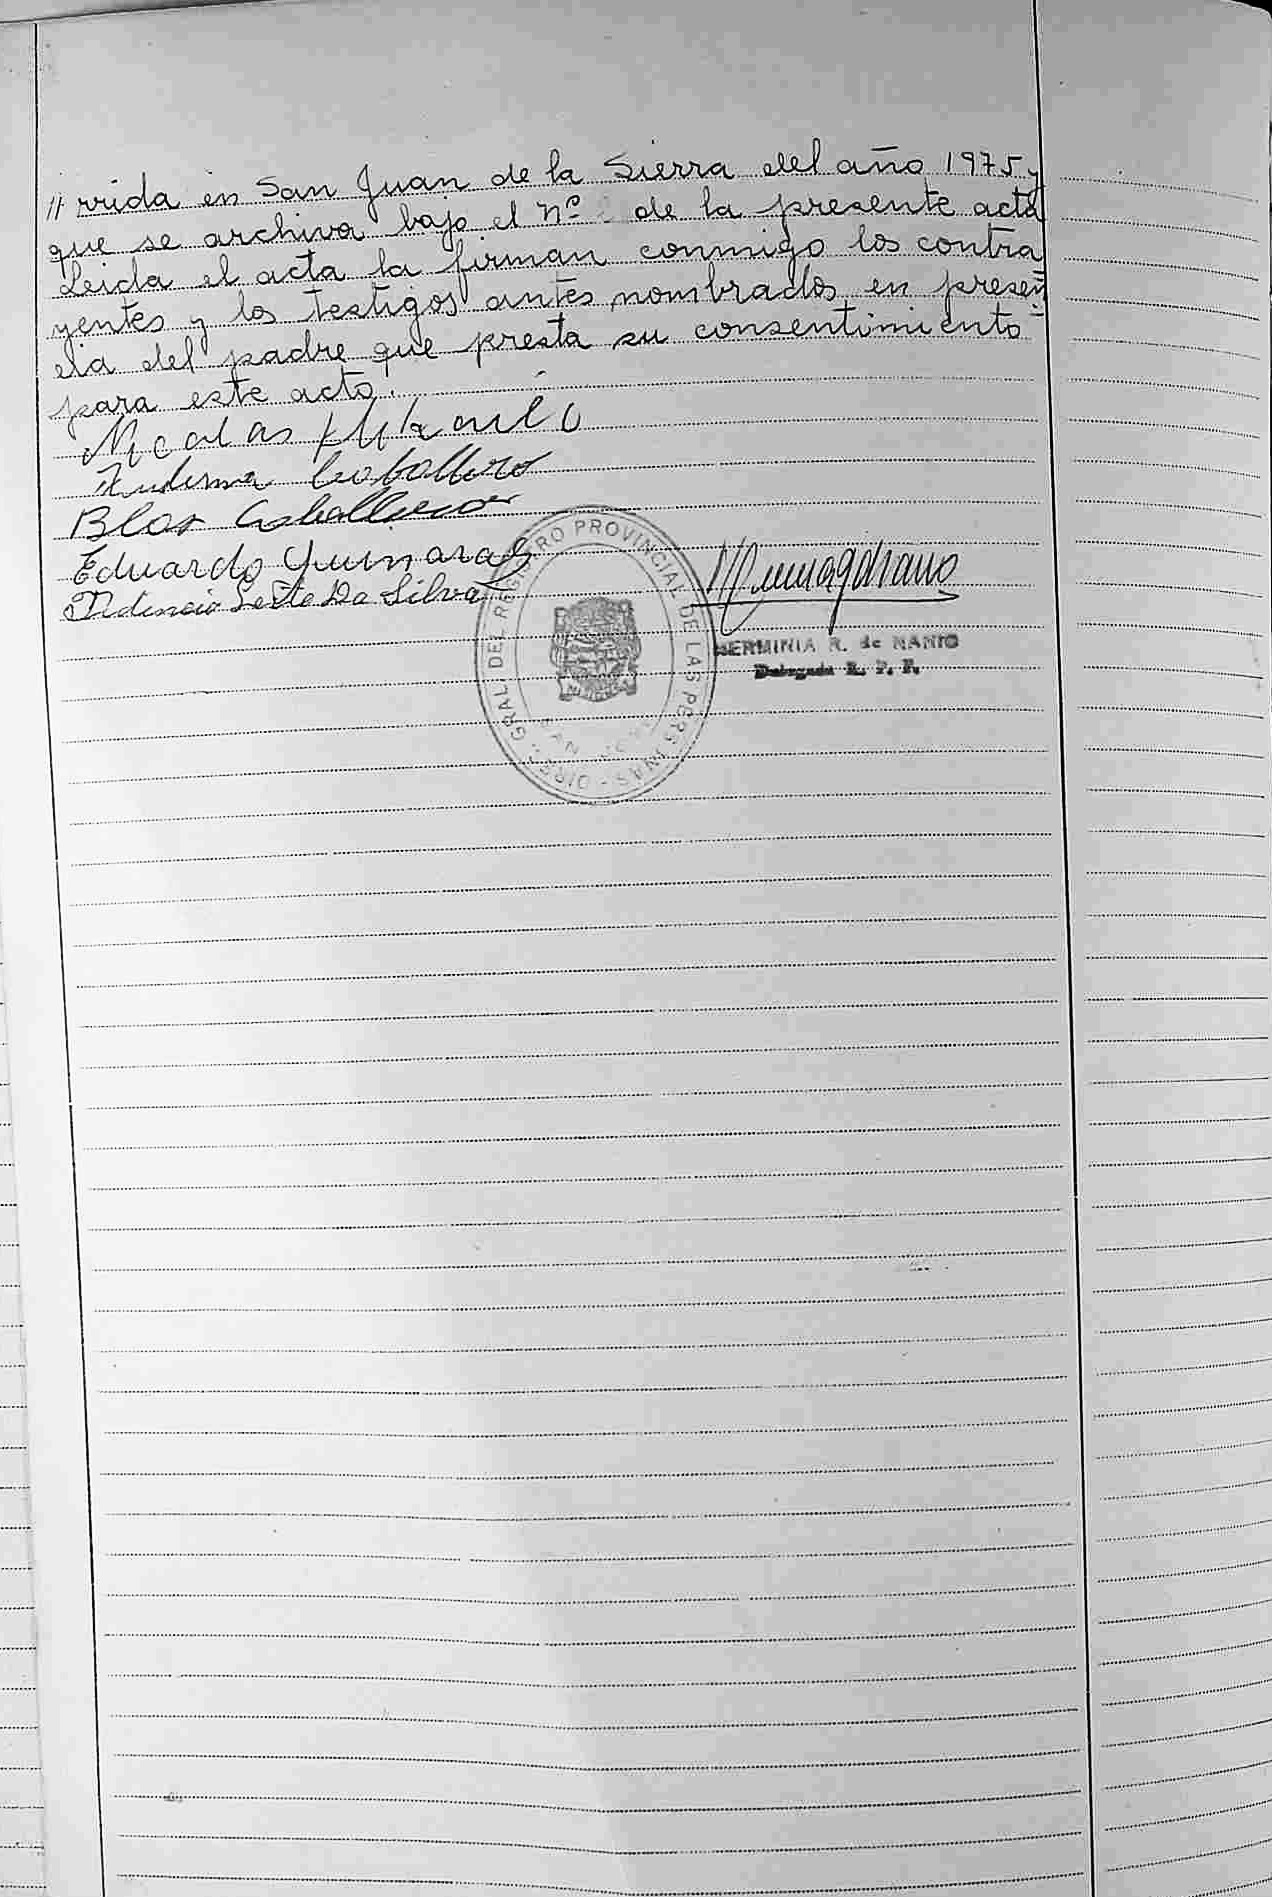 // rrida en San Juan de la Sierra del año 1975 y
que se archiva bajo el Nº de la presente acta
Leida el acta la firman conmigo los contra
yentes y los testigos antes nombrados en presen
cia del padre que presta su consentimiento
para este acto.
Nicolas
Caballero
Blas Caballero
Eduardo Guimaraes
Sexto Da Silva
DIREC. GRAL. DEL REGISTRO PROVINCIAL DE LAS PERSONAS
SAN JOSE
HERMINIA R. de NANIO
Delegada R. P. P.